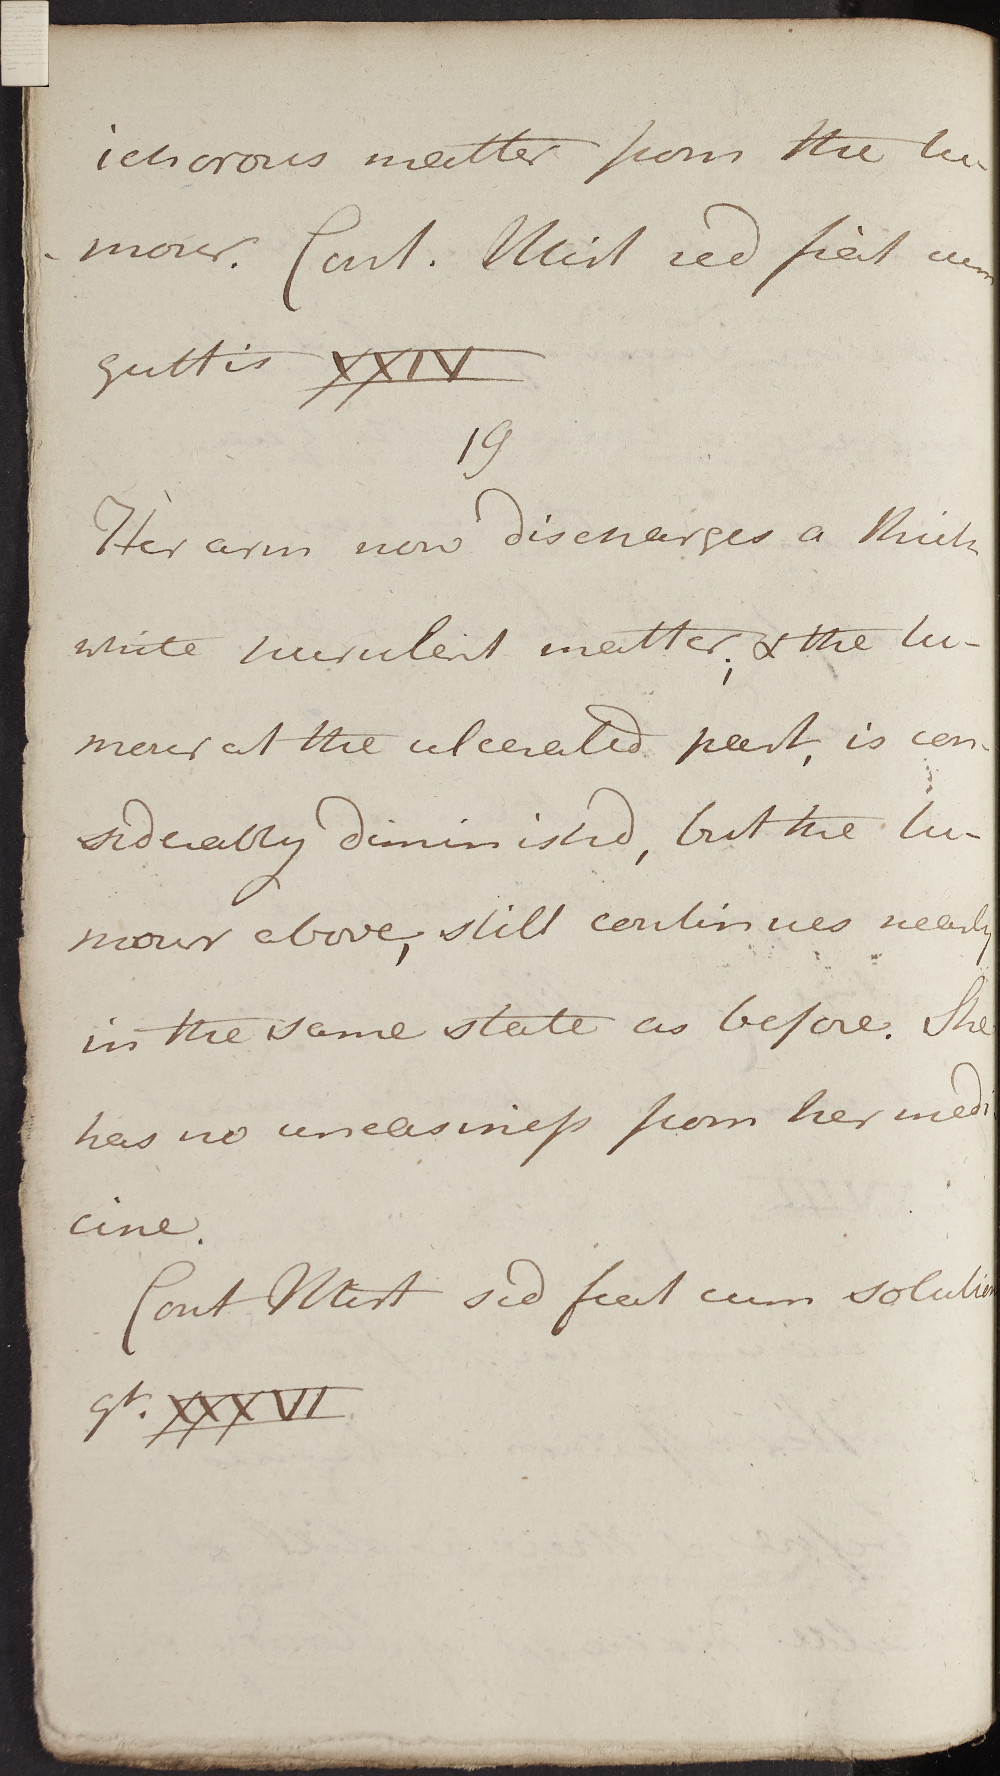 ichorous matter from the tu-
-mour. Cont. Mist sed fiat cum
guttis XXIV
19
Her arm now discharges a thick
white purulent matter; & the tu-
mour at the ulcerated part, is con-
siderably diminishd, but the tu-
mour above, still continues nearly
in the same state as before. She
has no uneasiness from her medi
cine.
Cont Mist sed fiat cum solution
gt. XXXVI